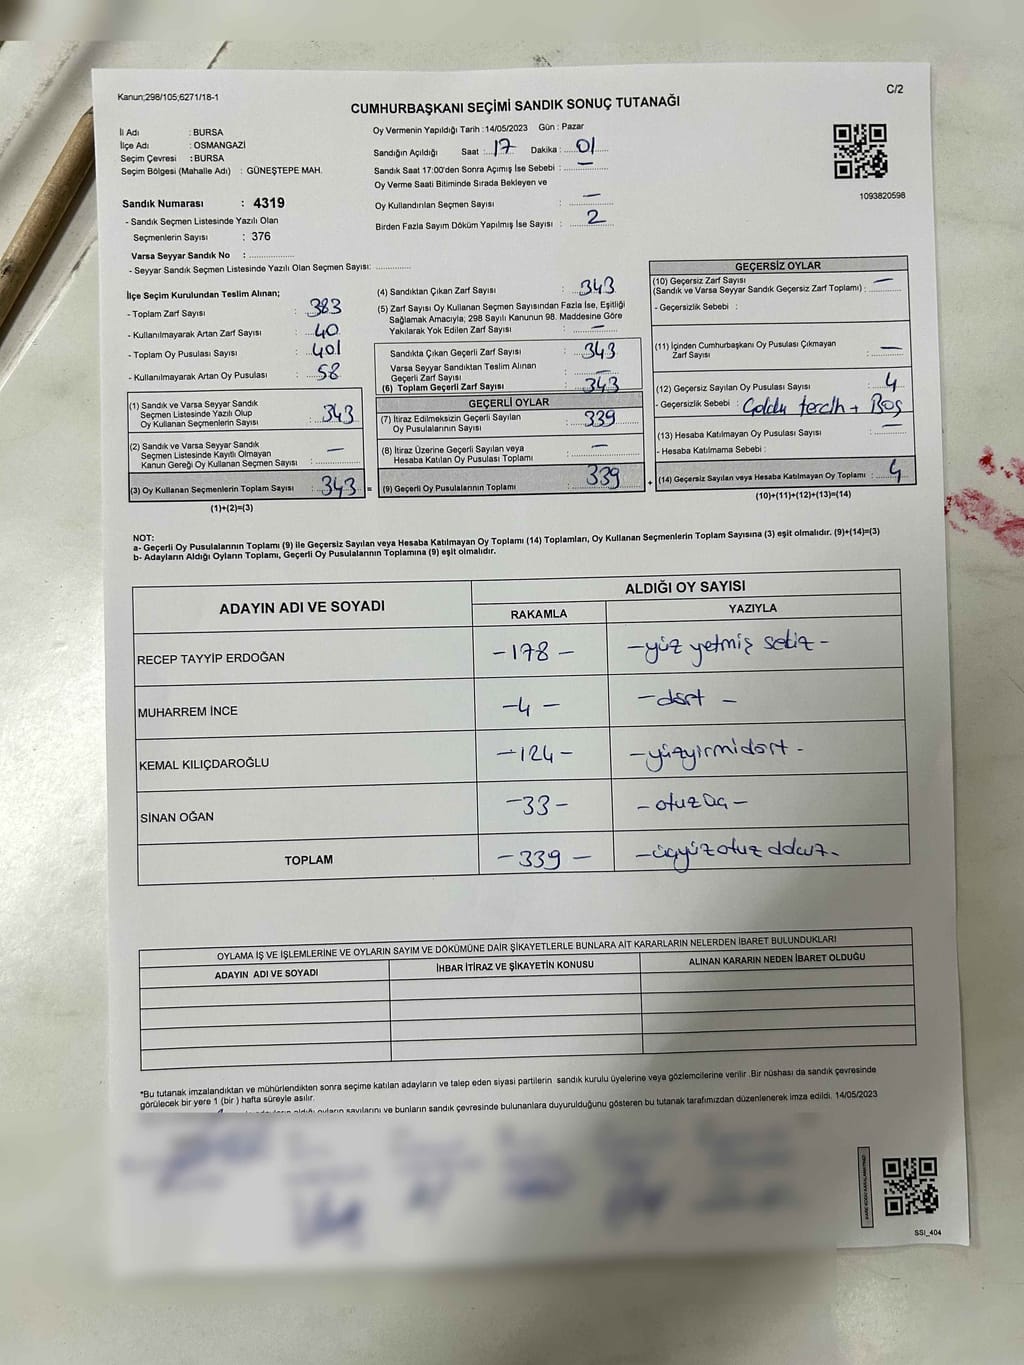 Kanun;298/105;6271/18-1
C/2
CUMHURBAŞKANI SEÇİMİ SANDIK SONUÇ TUTANAĞI
İl Adı : BURSA
İlçe Adı : OSMANGAZİ
Seçim Çevresi : BURSA
Seçim Bölgesi (Mahalle Adı) : GÜNEŞTEPE MAH.
Sandık Numarası : 4319
- Sandık Seçmen Listesinde Yazılı Olan
Seçmenlerin Sayısı : 376
Varsa Seyyar Sandık No : ................
- Seyyar Sandık Seçmen Listesinde Yazılı Olan Seçmen Sayısı: ............
Oy Vermenin Yapıldığı Tarih :14/05/2023 Gün : Pazar
Sandığın Açıldığı Saat : 17 Dakika : 01
Sandık Saat 17:00'den Sonra Açımış İse Sebebi : —
Oy Verme Saati Bitiminde Sırada Bekleyen ve
Oy Kullandırılan Seçmen Sayısı : —
Birden Fazla Sayım Döküm Yapılmış İse Sayısı : 2
1093820598
İlçe Seçim Kurulundan Teslim Alınan;
- Toplam Zarf Sayısı : 383
- Kullanılmayarak Artan Zarf Sayısı : 40
- Toplam Oy Pusulası Sayısı : 401
- Kullanılmayarak Artan Oy Pusulası : 58
(1) Sandık ve Varsa Seyyar Sandık
Seçmen Listesinde Yazılı Olup
Oy Kullanan Seçmenlerin Sayısı : 343
(2) Sandık ve Varsa Seyyar Sandık
Seçmen Listesinde Kayıtlı Olmayan
Kanun Gereği Oy Kullanan Seçmen Sayısı : —
(3) Oy Kullanan Seçmenlerin Toplam Sayısı : 343 =
(1)+(2)=(3)
(4) Sandıktan Çıkan Zarf Sayısı : 343
(5) Zarf Sayısı Oy Kullanan Seçmen Sayısından Fazla İse, Eşitliği
Sağlamak Amacıyla; 298 Sayılı Kanunun 98. Maddesine Göre
Yakılarak Yok Edilen Zarf Sayısı : —
Sandıkta Çıkan Geçerli Zarf Sayısı : 343
Varsa Seyyar Sandıktan Teslim Alınan
Geçerli Zarf Sayısı : —
(6) Toplam Geçerli Zarf Sayısı : 343
GEÇERLİ OYLAR
(7) İtiraz Edilmeksizin Geçerli Sayılan
Oy Pusulalarının Sayısı : 339
(8) İtiraz Üzerine Geçerli Sayılan veya
Hesaba Katılan Oy Pusulası Toplamı : —
(9) Geçerli Oy Pusulalarının Toplamı : 339 +
GEÇERSİZ OYLAR
(10) Geçersiz Zarf Sayısı
(Sandık ve Varsa Seyyar Sandık Geçersiz Zarf Toplamı) : —
- Geçersizlik Sebebi :
(11) İçinden Cumhurbaşkanı Oy Pusulası Çıkmayan
Zarf Sayısı : —
(12) Geçersiz Sayılan Oy Pusulası Sayısı : 4
- Geçersizlik Sebebi : Çoklu tercih + Boş
(13) Hesaba Katılmayan Oy Pusulası Sayısı : —
- Hesaba Katılmama Sebebi :
(14) Geçersiz Sayılan veya Hesaba Katılmayan Oy Toplamı : 4
(10)+(11)+(12)+(13)=(14)
NOT:
a- Geçerli Oy Pusulalarının Toplamı (9) ile Geçersiz Sayılan veya Hesaba Katılmayan Oy Toplamı (14) Toplamları, Oy Kullanan Seçmenlerin Toplam Sayısına (3) eşit olmalıdır. (9)+(14)=(3)
b- Adayların Aldığı Oyların Toplamı, Geçerli Oy Pusulalarının Toplamına (9) eşit olmalıdır.
ADAYIN ADI VE SOYADI ALDIĞI OY SAYISI
RAKAMLA YAZIYLA
RECEP TAYYİP ERDOĞAN -178- -yüz yetmiş sekiz-
MUHARREM İNCE -4- -dört-
KEMAL KILIÇDAROĞLU -124- -yüzyirmidört-
SİNAN OĞAN -33- -otuzüç-
TOPLAM -339- -üçyüzotuz dokuz-
OYLAMA İŞ VE İŞLEMLERİNE VE OYLARIN SAYIM VE DÖKÜMÜNE DAİR ŞİKAYETLERLE BUNLARA AİT KARARLARIN NELERDEN İBARET BULUNDUKLARI
ADAYIN ADI VE SOYADI İHBAR İTİRAZ VE ŞİKAYETİN KONUSU ALINAN KARARIN NEDEN İBARET OLDUĞU
*Bu tutanak imzalandıktan ve mühürlendikten sonra seçime katılan adayların ve talep eden siyasi partilerin sandık kurulu üyelerine veya gözlemcilerine verilir .Bir nüshası da sandık çevresinde
görülecek bir yere 1 (bir ) hafta süreyle asılır.
aldığı oyların sayılarını ve bunların sandık çevresinde bulunanlara duyurulduğunu gösteren bu tutanak tarafımızdan düzenlenerek imza edildi. 14/05/2023
SSI_404